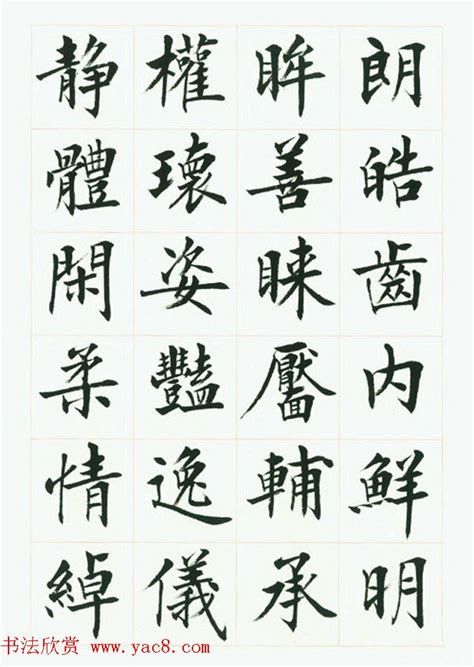 朗皓齒内鮮明
眸善睐靨輔承
權瓌姿豔逸儀
静體閑柔情綽
书法欣赏 www.yac8.com